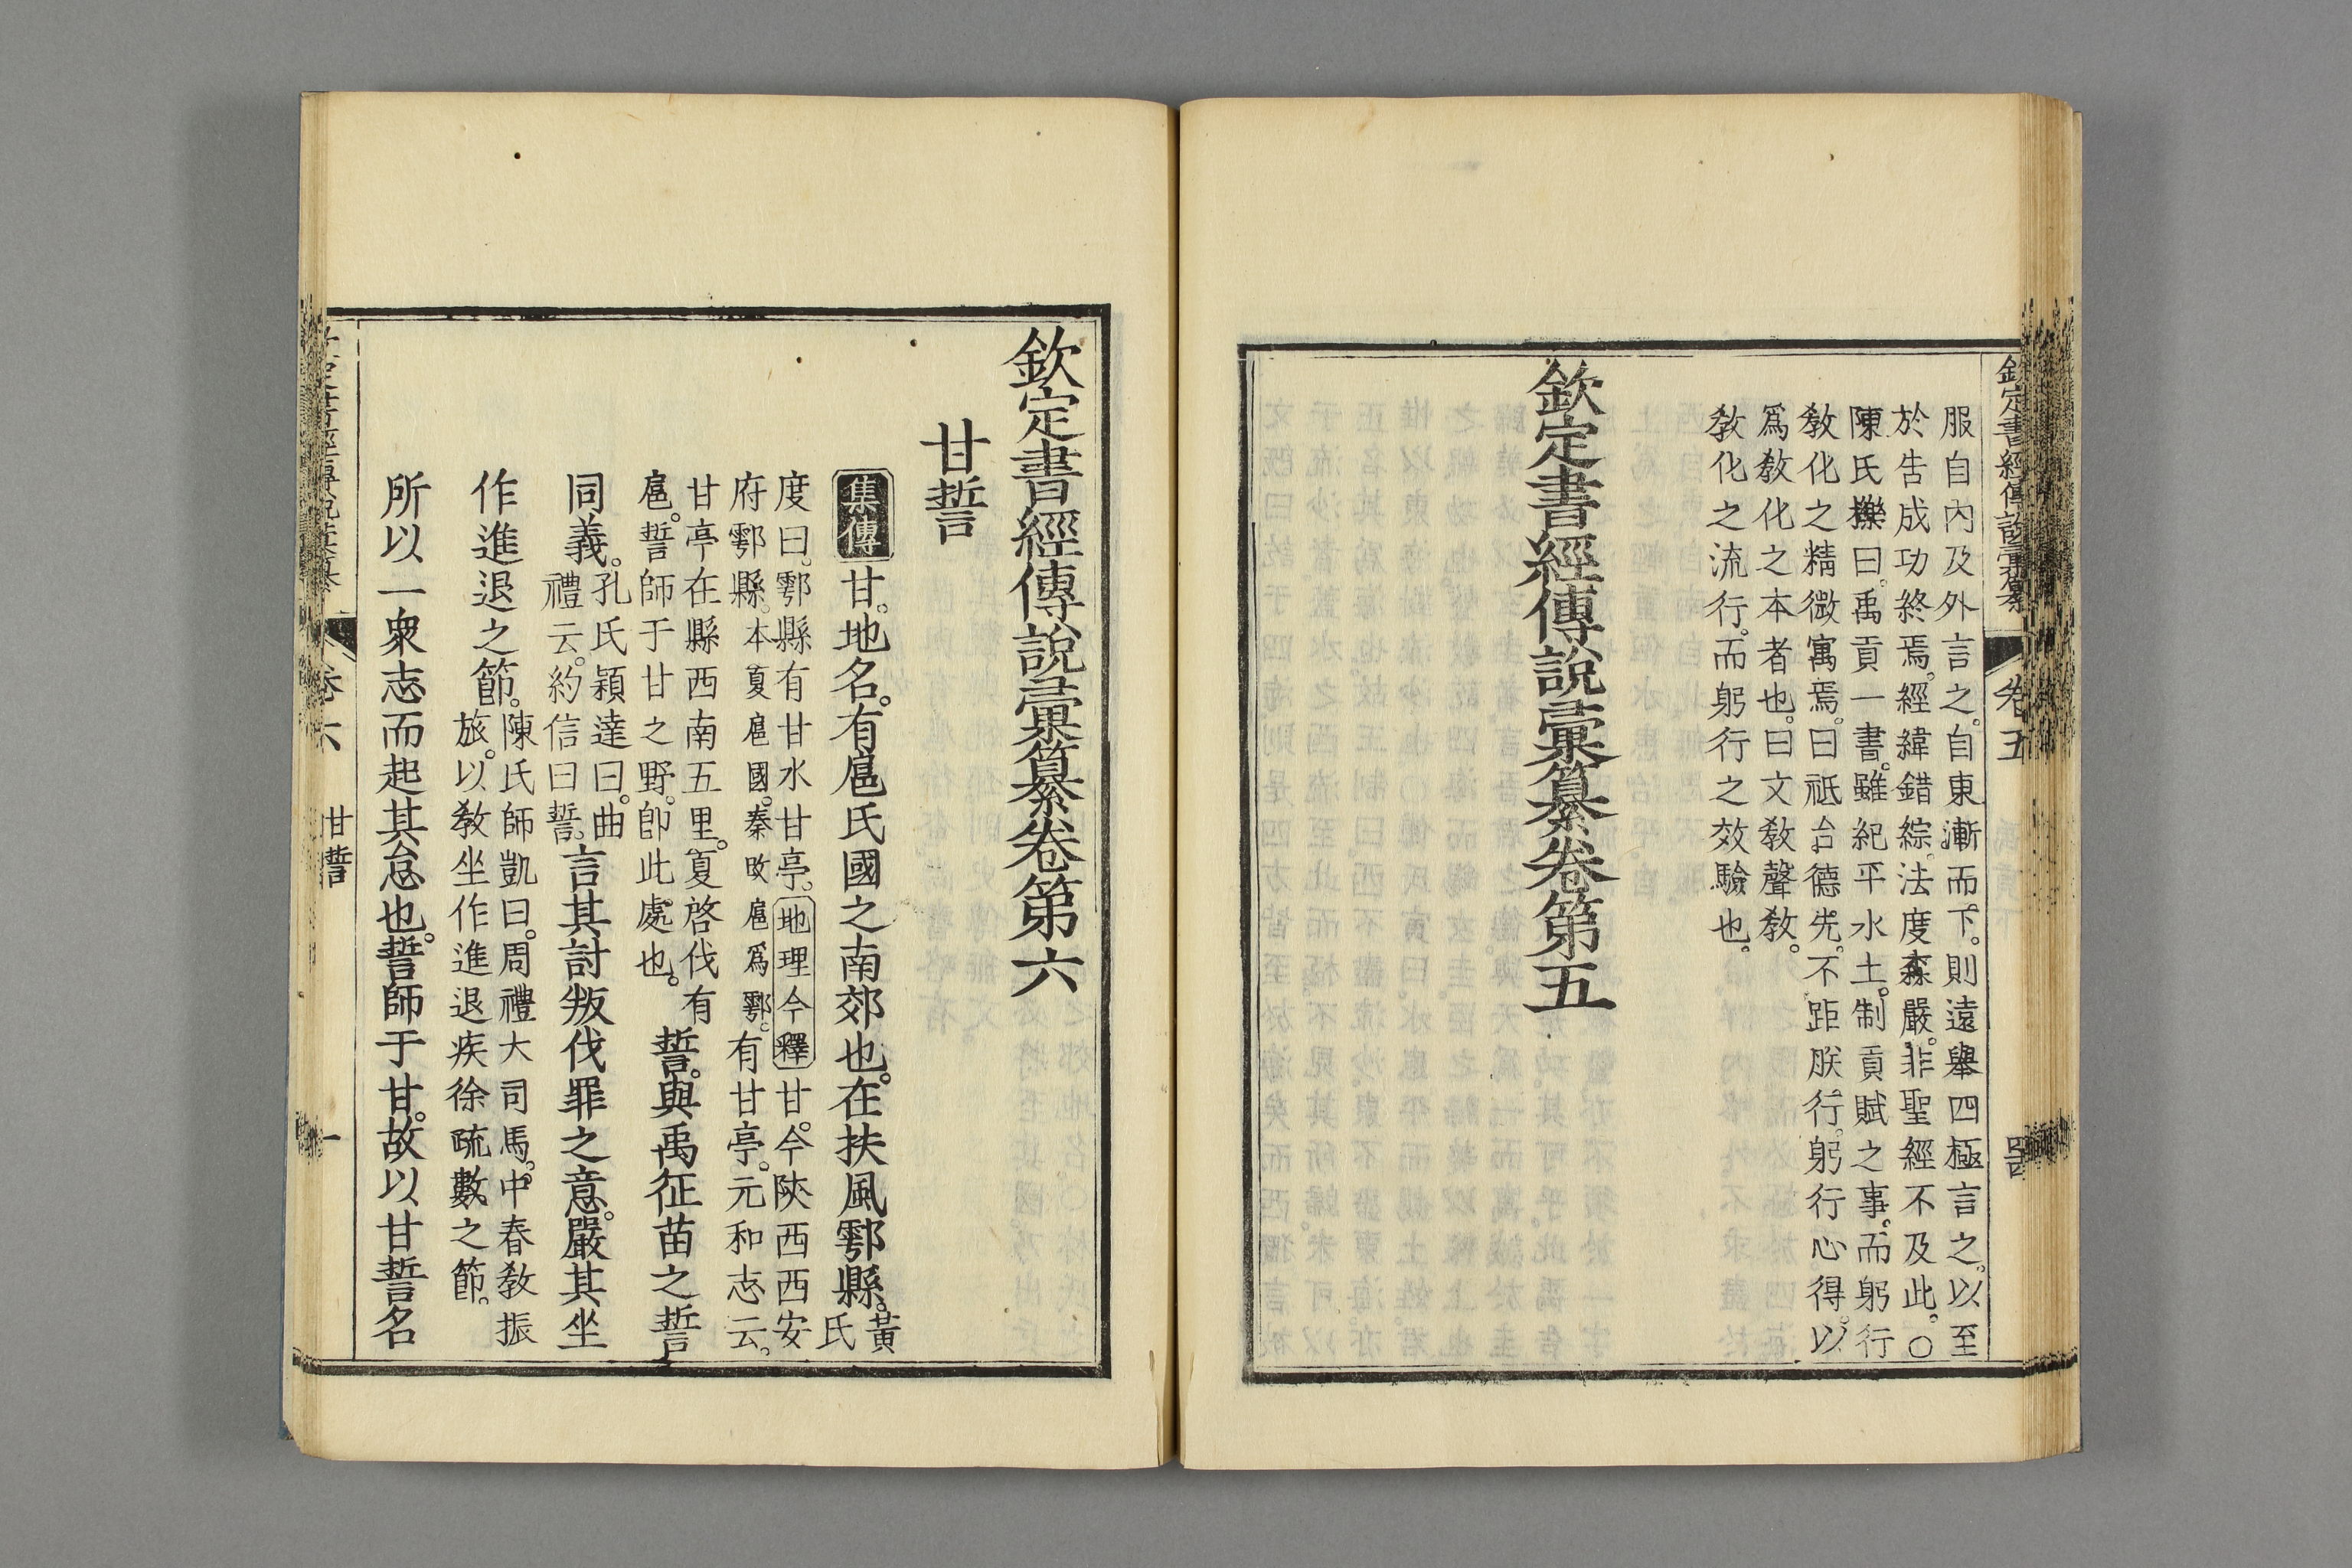 欽定書經傳說彙纂 卷五
服自內及外言之。自東漸而下。則遠舉四極言之。以至
於告成功終焉。經緯錯綜。法度森嚴。非聖經不及此。○
陳氏櫟曰。禹貢一書。雖紀平水土。制貢賦之事。而躬行
敎化之精微寓焉。曰祗台德先。不距朕行。躬行心得。以
爲敎化之本者也。曰文敎聲敎。
敎化之流行。而躬行之效驗也。
欽定書經傳說彙纂卷第五
欽定書經傳說彙纂卷第六
甘誓
集傳 甘。地名。有扈氏國之南郊也。在扶風鄠縣。黃氏
度曰。鄠縣有甘水甘亭。地理今釋 甘。今陝西西安
府鄠縣。本夏扈國。秦改扈爲鄠。有甘亭。元和志云。
甘亭在縣西南五里。夏啓伐有
扈。誓師于甘之野。卽此處也。
誓。與禹征苗之誓
同義。孔氏穎達曰。曲
禮云。約信曰誓。
言其討叛伐罪之意。嚴其坐
作進退之節。陳氏師凱曰。周禮大司馬。中春敎振
旅。以敎坐作進退疾徐疏數之節。
所以一衆志而起其怠也。誓師于甘。故以甘誓名
卷六 甘誓 一